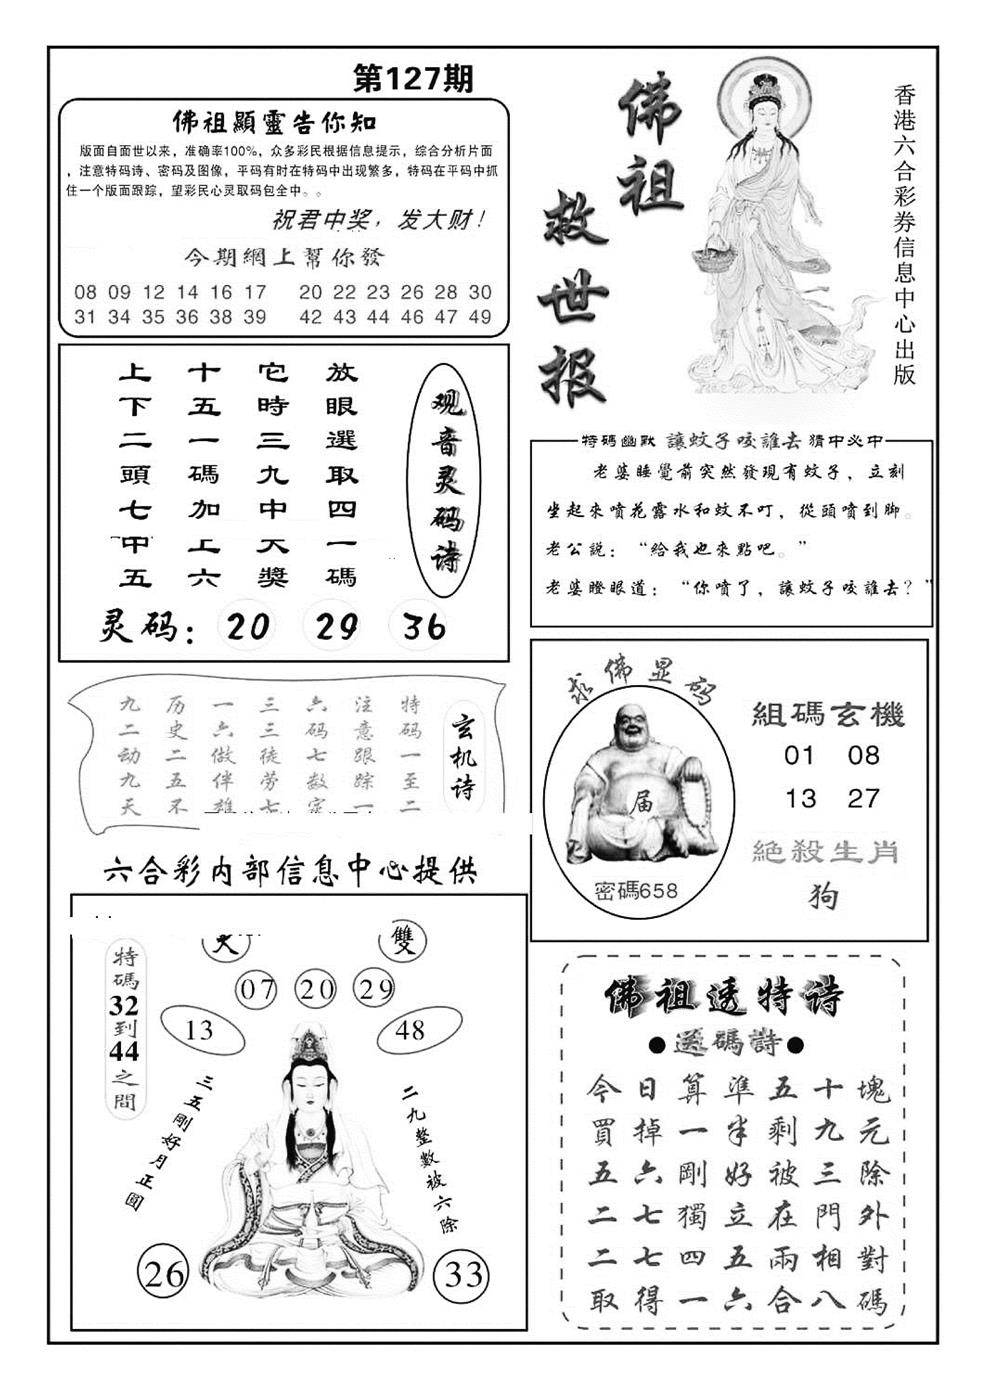 第127期
佛祖顯靈告你知
版面自面世以来，准确率100%，众多彩民根据信息提示，综合分析片面
，注意特码诗、密码及图像，平码有时在特码中出现繁多，特码在平码中抓
住一个版面跟踪，望彩民心灵取码包全中。。
祝君中奖，发大财！
今期網上幫你發
08 09 12 14 16 17 20 22 23 26 28 30
31 34 35 36 38 39 42 43 44 46 47 49
佛祖
救世报
香港六合彩券信息中心出版
观音灵码诗
放眼選取四一碼
它時三九中天獎
十五一碼加上六
上下二頭七中五
灵码：20 29 36
特碼幽默 讓蚊子咬誰去 猜中必中
老婆睡覺前突然發現有蚊子，立刻
坐起來噴花露水和蚊不叮，從頭噴到脚。
老公説：“给我也來點吧。”
老婆瞪眼道：“你喷了，讓蚊子咬誰去？”
玄机诗
特码一至二
注意跟踪一
六码七数定
三三徒劳七
一六做伴雄
历史二五不
九二动九天
求佛显码
届
密碼658
組碼玄機
01 08
13 27
絕殺生肖
狗
六合彩内部信息中心提供
大
雙
07 20 29
13
48
特碼32到44之間
三五剛好月正圓
二九整數被六除
26
33
佛祖透特诗
●送碼詩●
今日算準五十塊
買掉一半剩九元
五六剛好被三除
二七獨立在門外
二七四五兩相對
取得一六合八碼